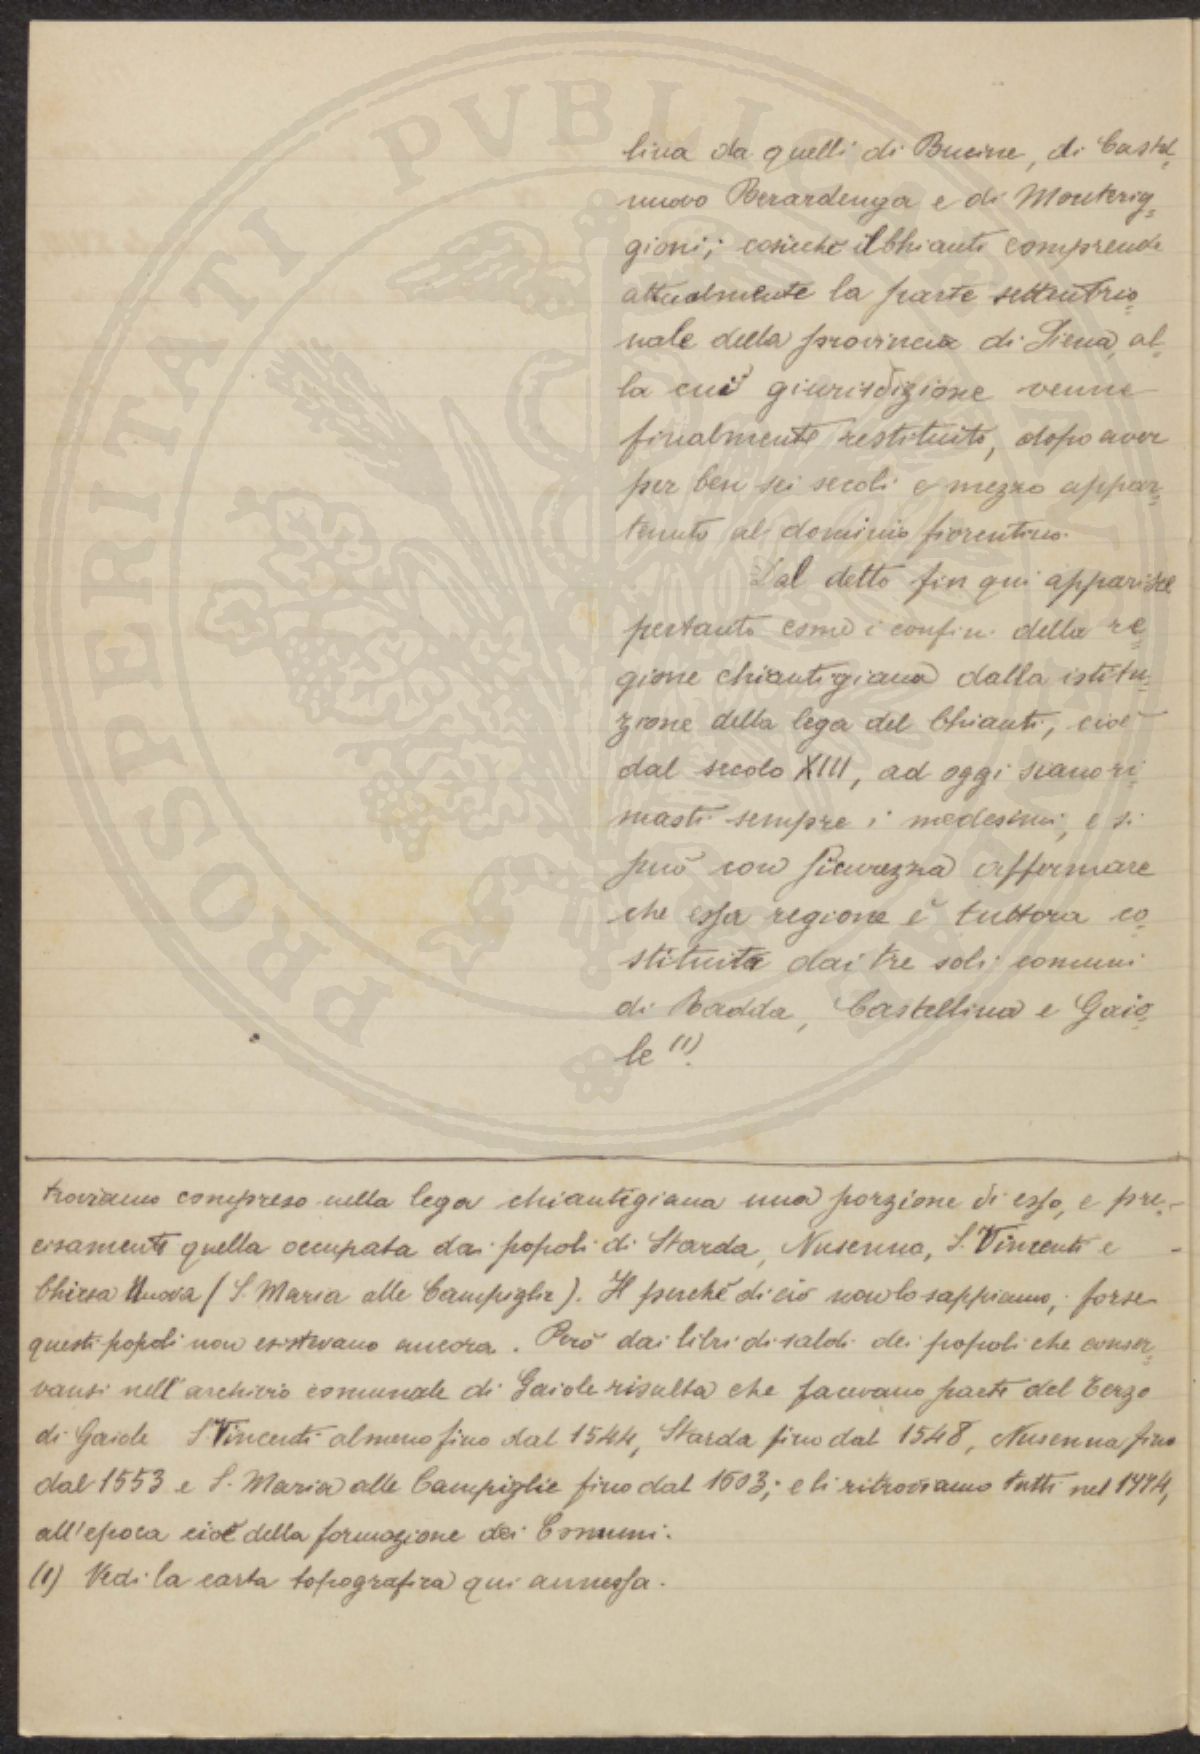 lina da quelli di Bucine, di Castel=
nuovo Berardenga e di Monterig=
gioni; cosicchè il Chianti comprende
attualmente la parte settentrio=
nale della provincia di Siena, al=
la cui giurisdizione venne
finalmente restituito, dopo aver
per ben sei secoli e mezzo appar=
tenuto al dominio fiorentino.
Dal detto fin qui apparisce
pertanto come i confini della re=
gione chiantigiana dalla istitu=
zione della lega del Chianti, cioè
dal secolo XIII, ad oggi siano ri=
masti sempre i medesimi, e si
può con sicurezza affermare
che essa regione è tuttora co=
stituita dai tre soli comuni
di Radda, Castellina e Gaio=
le (1).
troviamo compreso nella lega chiantigiana una porzione di esso, e pre=
cisamente quella occupata dai popoli di Starda, Nusenna, S. Vincenti e
Chiesa Nuova (S. Maria alle Campiglie). Il perchè di ciò non lo sappiamo; forse
questi popoli non esistevano ancora. Però dai libri di saldi dei popoli che conser=
vansi nell'archivio comunale di Gaiole risulta che facevano parte del Terzo
di Gaiole S. Vincenti almeno fino dal 1544, Starda fino dal 1548, Nusenna fino
dal 1553 e S. Maria alle Campiglie fino dal 1603; e li ritroviamo tutti nel 1774,
all'epoca cioè della formazione dei Comuni.
(1) Vedi la carta topografica qui annessa.
PROSPERITATI PVBLICAE